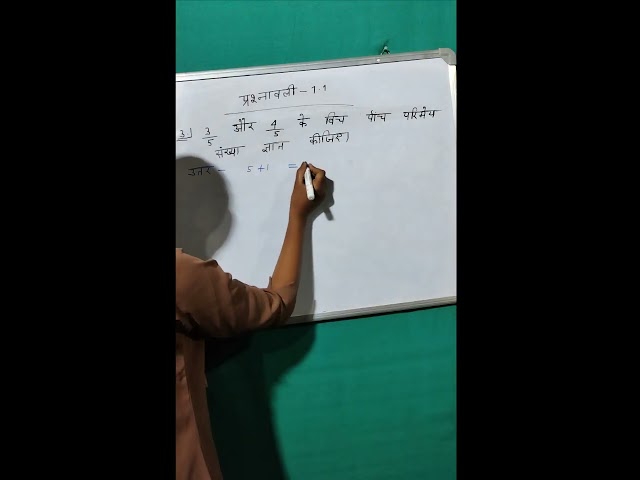 प्रश्नावली - 1.1
3) 3/5 और 4/5 के विच पांच परिमेय
संख्या ज्ञात कीजिए)
उत्तर - 5+1 =